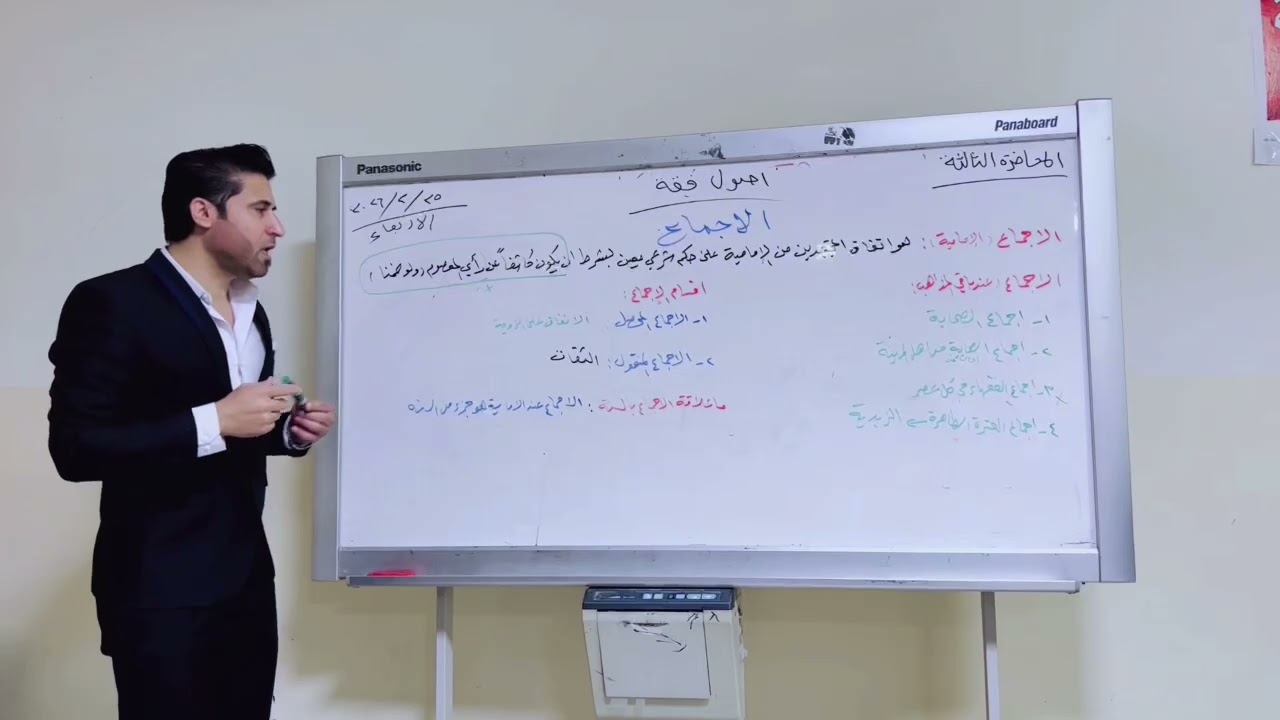 Panasonic
Panaboard
المحاضرة الثالثة
اصول فقه
٢٠٢٦/٢/٢٥
الاربعاء
الاجماع
الاجماع (الإمامية): هو اتفاق المجتهدين من الإمامية على حكم شرعي معين بشرط ان يكون كاشفاً عن رأي المعصوم (ولو ضمنا)
الاجماع عند باقي المذاهب:
١- اجماع الصحابة
٢- اجماع الصحابة من اهل المدينة
٣- اجماع الفقهاء في كل عصر
٤- اجماع العترة الطاهرة الزيدية
اقسام الإجماع:
١- الاجماع المحصل: الاتفاق على
٢- الاجماع المنقول: الثقات
ما علاقة الاجماع بالسنة: الاجماع عند الامامية هو جزء من السنه